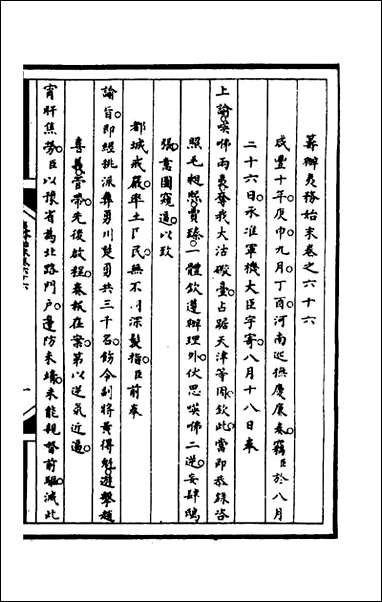 籌辦夷務始末卷之六十六
咸豐十年庚申九月丁酉河南巡撫慶廉奏竊臣於八月
二十六日承准軍機大臣字寄八月十八日奉
上諭嘆咈兩夷奪我大沽礮臺占踞天津等因欽此當即恭錄咨
照毛昶熙賈臻一體欽遵辦理外伏思嘆咈二逆妄肆鴟
張意圖窺逼以致
都城戒嚴率土臣民無不同深髮指臣前奉
諭旨即經挑派彝勇川楚勇共三千名飭令副將黃得魁遊擊趙
喜義管帶先後啟程奏報在案第以逆氛近逼
宵旰焦勞臣以豫省為北路門戶邊防未竣未能親督前驅滅此